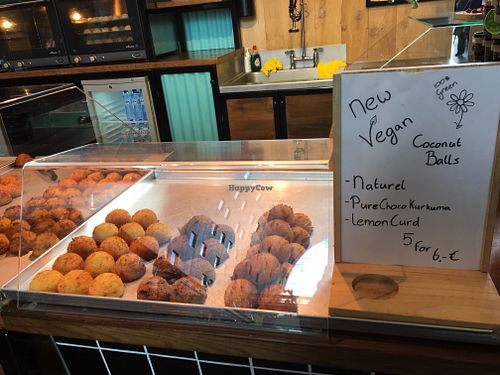 new
Vegan
100%
green
Coconut
Balls
- Naturel
- Pure Choco Kurkuma
- lemon Curd
5 For 6,-€
HappyCow